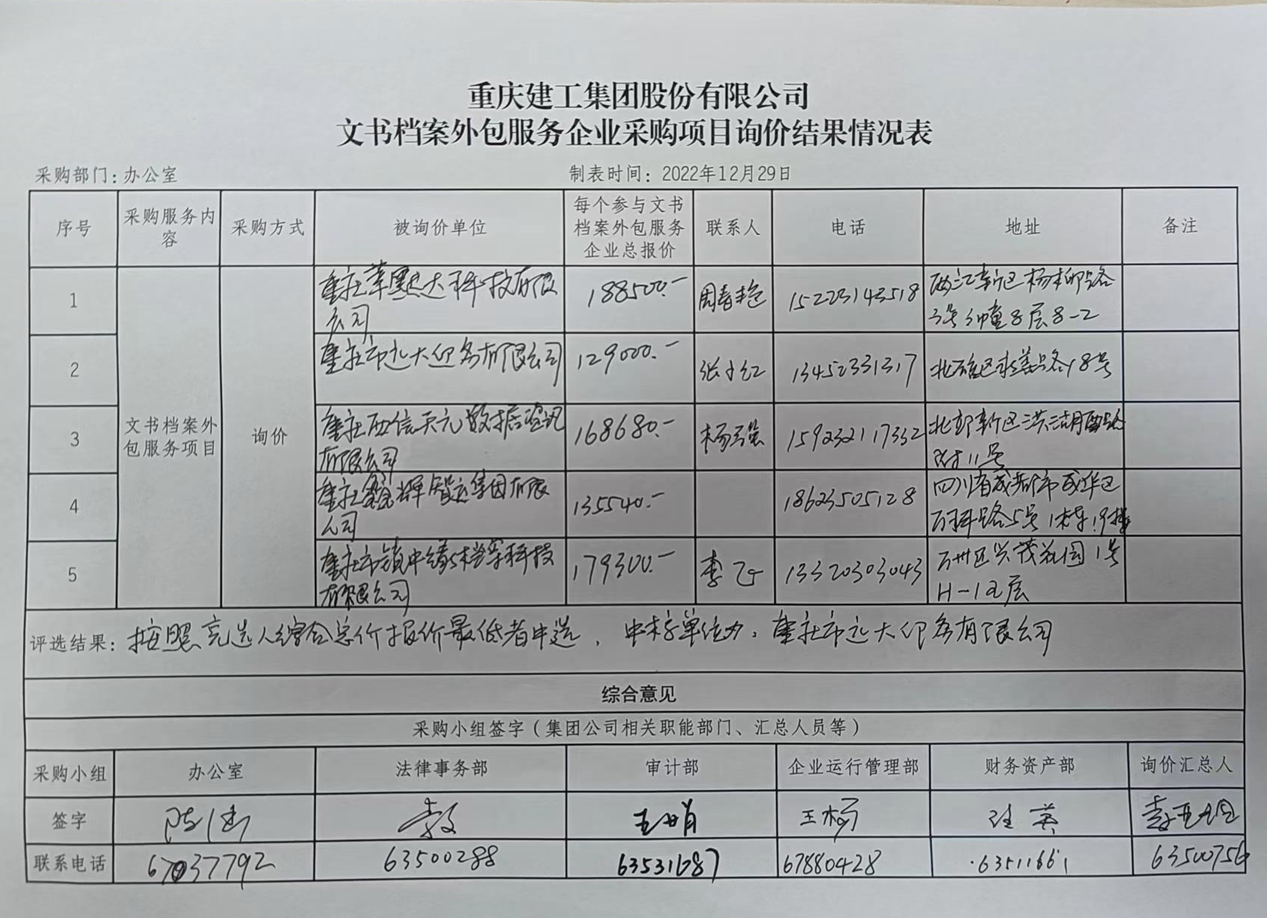 重庆建工集团股份有限公司
文书档案外包服务企业采购项目询价结果情况表
采购部门:办公室 制表时间：2022年12月29日
序号 采购服务内容 采购方式 被询价单位 每个参与文书档案外包服务企业总报价 联系人 电话 地址 备注
文书档案外包服务项目 询价
1 重庆 达科技有限公司 188500.- 周春艳 15223143518 两江新区杨柳路3号 8层8-2
2 重庆市远大印务有限公司 129000.- 张小红 13452331317 北碚区水善路18号
3 重庆西信天元数据资讯有限公司 168680.- 杨强 159232117332 北部新区洪湖西路 11号
4 重庆 辉智运集团有限公司 135540.- 18623505128 四川省成都市成华区万科路5号1栋19楼
5 重庆市 中缘档案科技有限公司 179300.- 李飞 13320303043 万州区兴茂花园1号H-1五层
评选结果：按照竞选人综合总价报价最低者中选，中标单位为：重庆市远大印务有限公司
综合意见
采购小组签字（集团公司相关职能部门、汇总人员等）
采购小组 办公室 法律事务部 审计部 企业运行管理部 财务资产部 询价汇总人
签字 王杨
联系电话 67037792 63500288 63531687 67880428 63511661 63500756